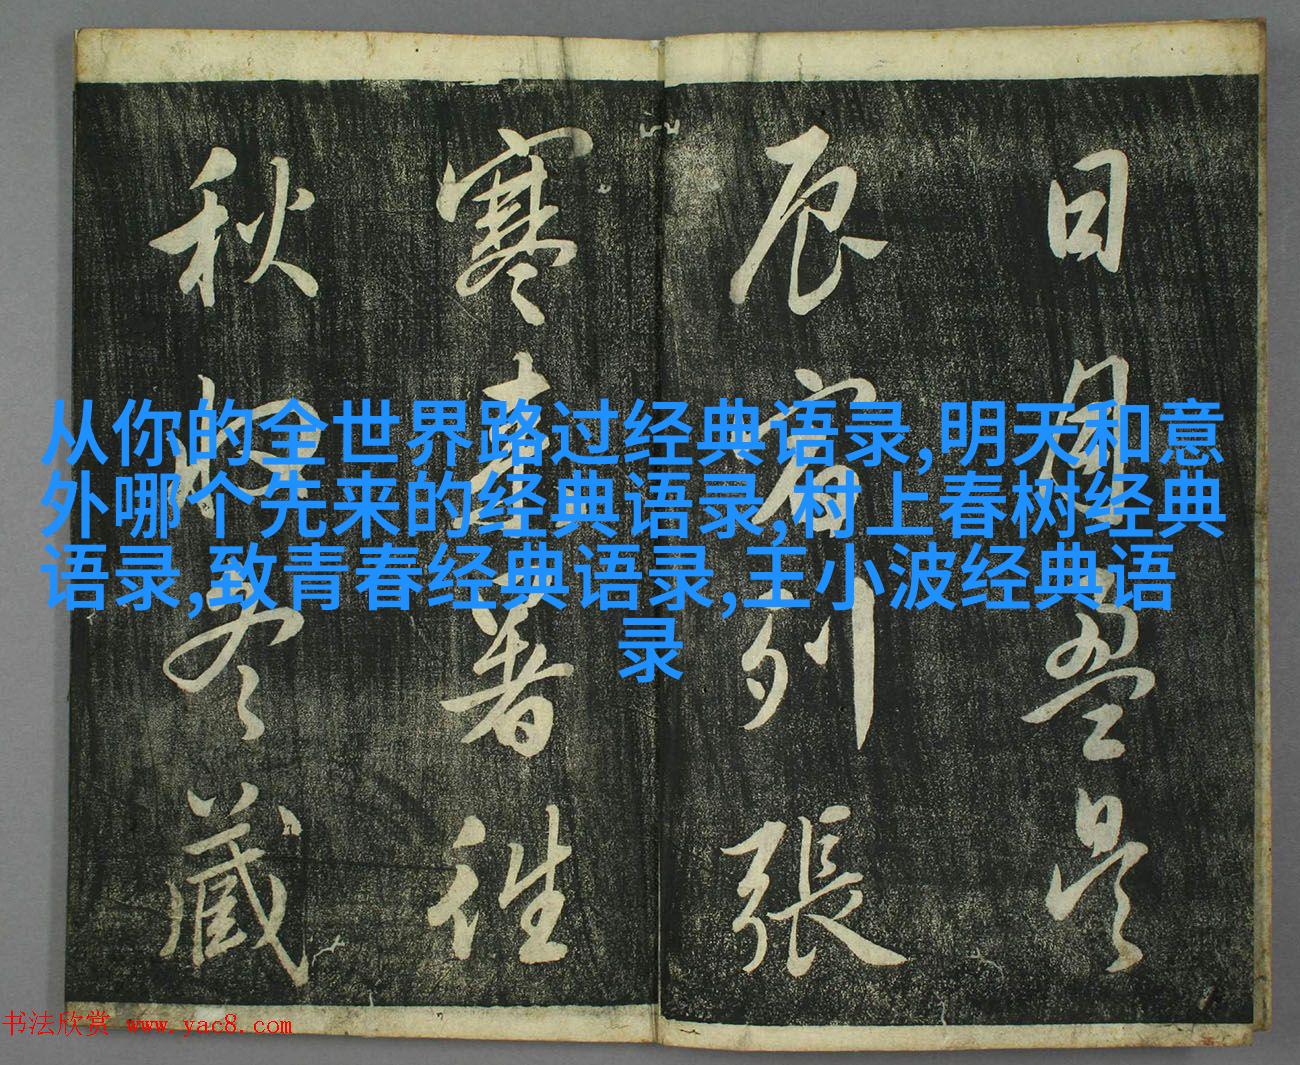 日月盈昃
辰宿列張
寒来暑往
秋收冬藏
从你的全世界路过经典语录,明天和意
外哪个先来的经典语录,村上春树经典
语录,致青春经典语录,王小波经典语
录
书法欣赏 www.yac8.com